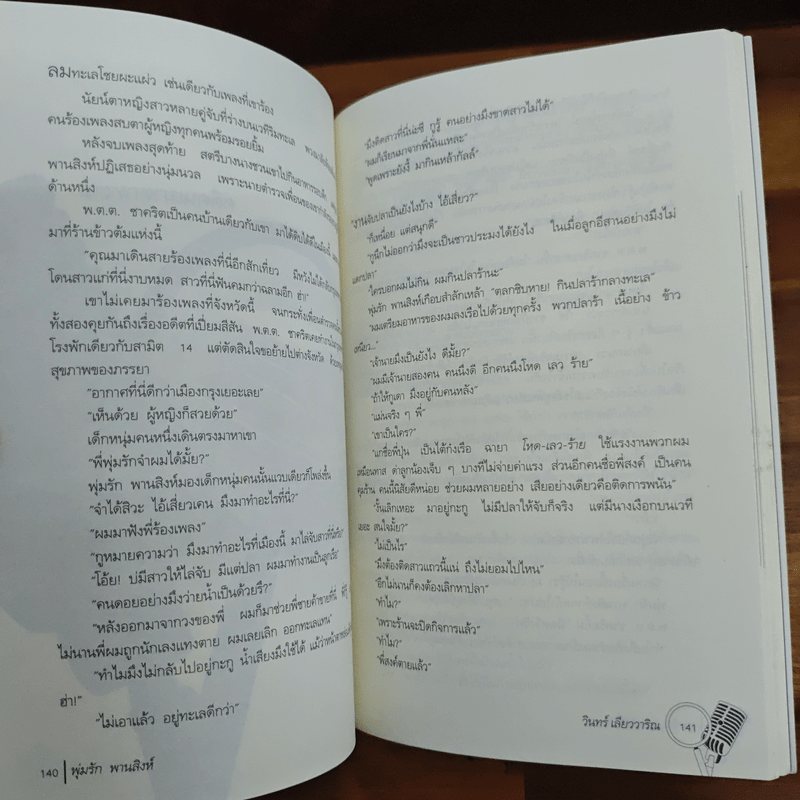 ลมทะเลโชยผะแผ่ว เช่นเดียวกับเพลงที่เขาร้อง
นัยน์ตาหญิงสาวหลายคู่จับที่ร่างบนเวทีริมทะเล
คนร้องเพลงสบตาผู้หญิงทุกคนพร้อมรอยยิ้ม
หลังจบเพลงสุดท้าย สตรีบางนางชวนเขาไปกินอาหารรอบดึก
พานสิงห์ปฏิเสธอย่างนุ่มนวล เพราะนายตำรวจเพื่อนของเขา
ด้านหนึ่ง
พ.ต.ต. ชาคริตเป็นคนบ้านเดียวกับเขา
มาที่ร้านข้าวต้มแห่งนี้
"คุณมาเดินสายร้องเพลงที่นี่อีกสักเที่ยว
โดนสาวแก่ที่นี่งาบหมด สาวที่นี่ฟันคมกว่าฉลามอีก ฮ่า!"
เขาไม่เคยมาร้องเพลงที่จังหวัดนี้
ทั้งสองคุยกันถึงเรื่องอดีตที่เปี่ยมสีสัน พ.ต.ต. ชาคริตเคย
โรงพักเดียวกับสามิต 14 แต่ตัดสินใจขอย้ายไปต่างจังหวัด
สุขภาพของภรรยา
"อากาศที่นี่ดีกว่าเมืองกรุงเยอะเลย"
"เห็นด้วย ผู้หญิงก็สวยด้วย"
เด็กหนุ่มคนหนึ่งเดินตรงมาหาเขา
"พี่พุ่มรักจำผมได้มั้ย?"
พุ่มรัก พานสิงห์มองเด็กหนุ่มคนนั้นแวบเดียวก็โพล่งขึ้น
"จำได้สิวะ ไอ้เสี่ยวเคน มึงมาทำอะไรที่นี่?"
"ผมมาฟังพี่ร้องเพลง"
"กูหมายความว่า มึงมาทำอะไรที่เมืองนี้ มาไล่จับสาวที่นี่หรือ"
"โอ้ย! บ่มีสาวให้ไล่จับ มีแต่ปลา ผมมาทำงานเป็นลูกเรือ"
"คนดอยอย่างมึงว่ายน้ำเป็นด้วยรึ?"
"หลังออกมาจากวงของพี่ ผมก็มาช่วยพี่ชายค้าขายที่นี่
ไม่นานพี่ผมถูกนักเลงแทงตาย ผมเลยเลิก ออกทะเลแทน"
"ทำไมมึงไม่กลับไปอยู่กะกู น้ำเสียงมึงใช้ได้
ฮ่า!"
"ไม่เอาแล้ว อยู่ทะเลดีกว่า"
140 พุ่มรัก พานสิงห์
"มึงติดสาวที่นี่น่ะซี กูรู้ คนอย่างมึงขาดสาวไม่ได้"
"ผมก็เรียนมาจากพี่นั่นแหละ"
"พูดเพราะยังงี้ มากินเหล้ากัลล์"
"งานจับปลาเป็นยังไงบ้าง ไอ้เสี่ยว?"
"ก็เหนื่อย แต่สนุกดี"
"กูนึกไม่ออกว่ามึงจะเป็นชาวประมงได้ยังไง ในเมื่อลูกอีสานอย่างมึงไม่
แดกปลา"
"ใครบอกผมไม่กิน ผมกินปลาร้านะ"
พุ่มรัก พานสิงห์เกือบสำลักเหล้า "ตลกชิบหาย! กินปลาร้ากลางทะเล"
"ผมเตรียมอาหารของผมลงเรือไปด้วยทุกครั้ง พวกปลาร้า เนื้อย่าง ข้าว
เหนียว..."
"เจ้านายมึงเป็นยังไง ดีมั้ย?"
"ผมมีเจ้านายสองคน คนนึงดี อีกคนนึงโหด เลว ร้าย"
"ถ้าให้กูเดา มึงอยู่กับคนหลัง"
"แม่นจริง ๆ พี่"
"เขาเป็นใคร?"
"แกชื่อพี่ปุ่น เป็นไต้ก๋งเรือ ฉายา โหด-เลว-ร้าย ใช้แรงงานพวกผม
เหมือนทาส ด่าลูกน้องเจ็บ ๆ บางทีไม่จ่ายค่าแรง ส่วนอีกคนชื่อพี่สงค์ เป็นคน
คุมร้าน คนนี้นิสัยดีหน่อย ช่วยผมหลายอย่าง เสียอย่างเดียวคือติดการพนัน"
"งั้นเลิกเหอะ มาอยู่กะกู ไม่มีปลาให้จับก็จริง แต่มีนางเงือกบนเวที
เยอะ สนใจมั้ย?"
"ไม่เป็นไร"
"มึงต้องติดสาวแถวนี้แน่ ถึงไม่ยอมไปไหน"
"อีกไม่นานก็คงต้องเลิกหาปลา"
"ทำไม?"
"เพราะร้านจะปิดกิจการแล้ว"
"ทำไม?"
"พี่สงค์ตายแล้ว"
วินทร์ เลียววาริณ 141